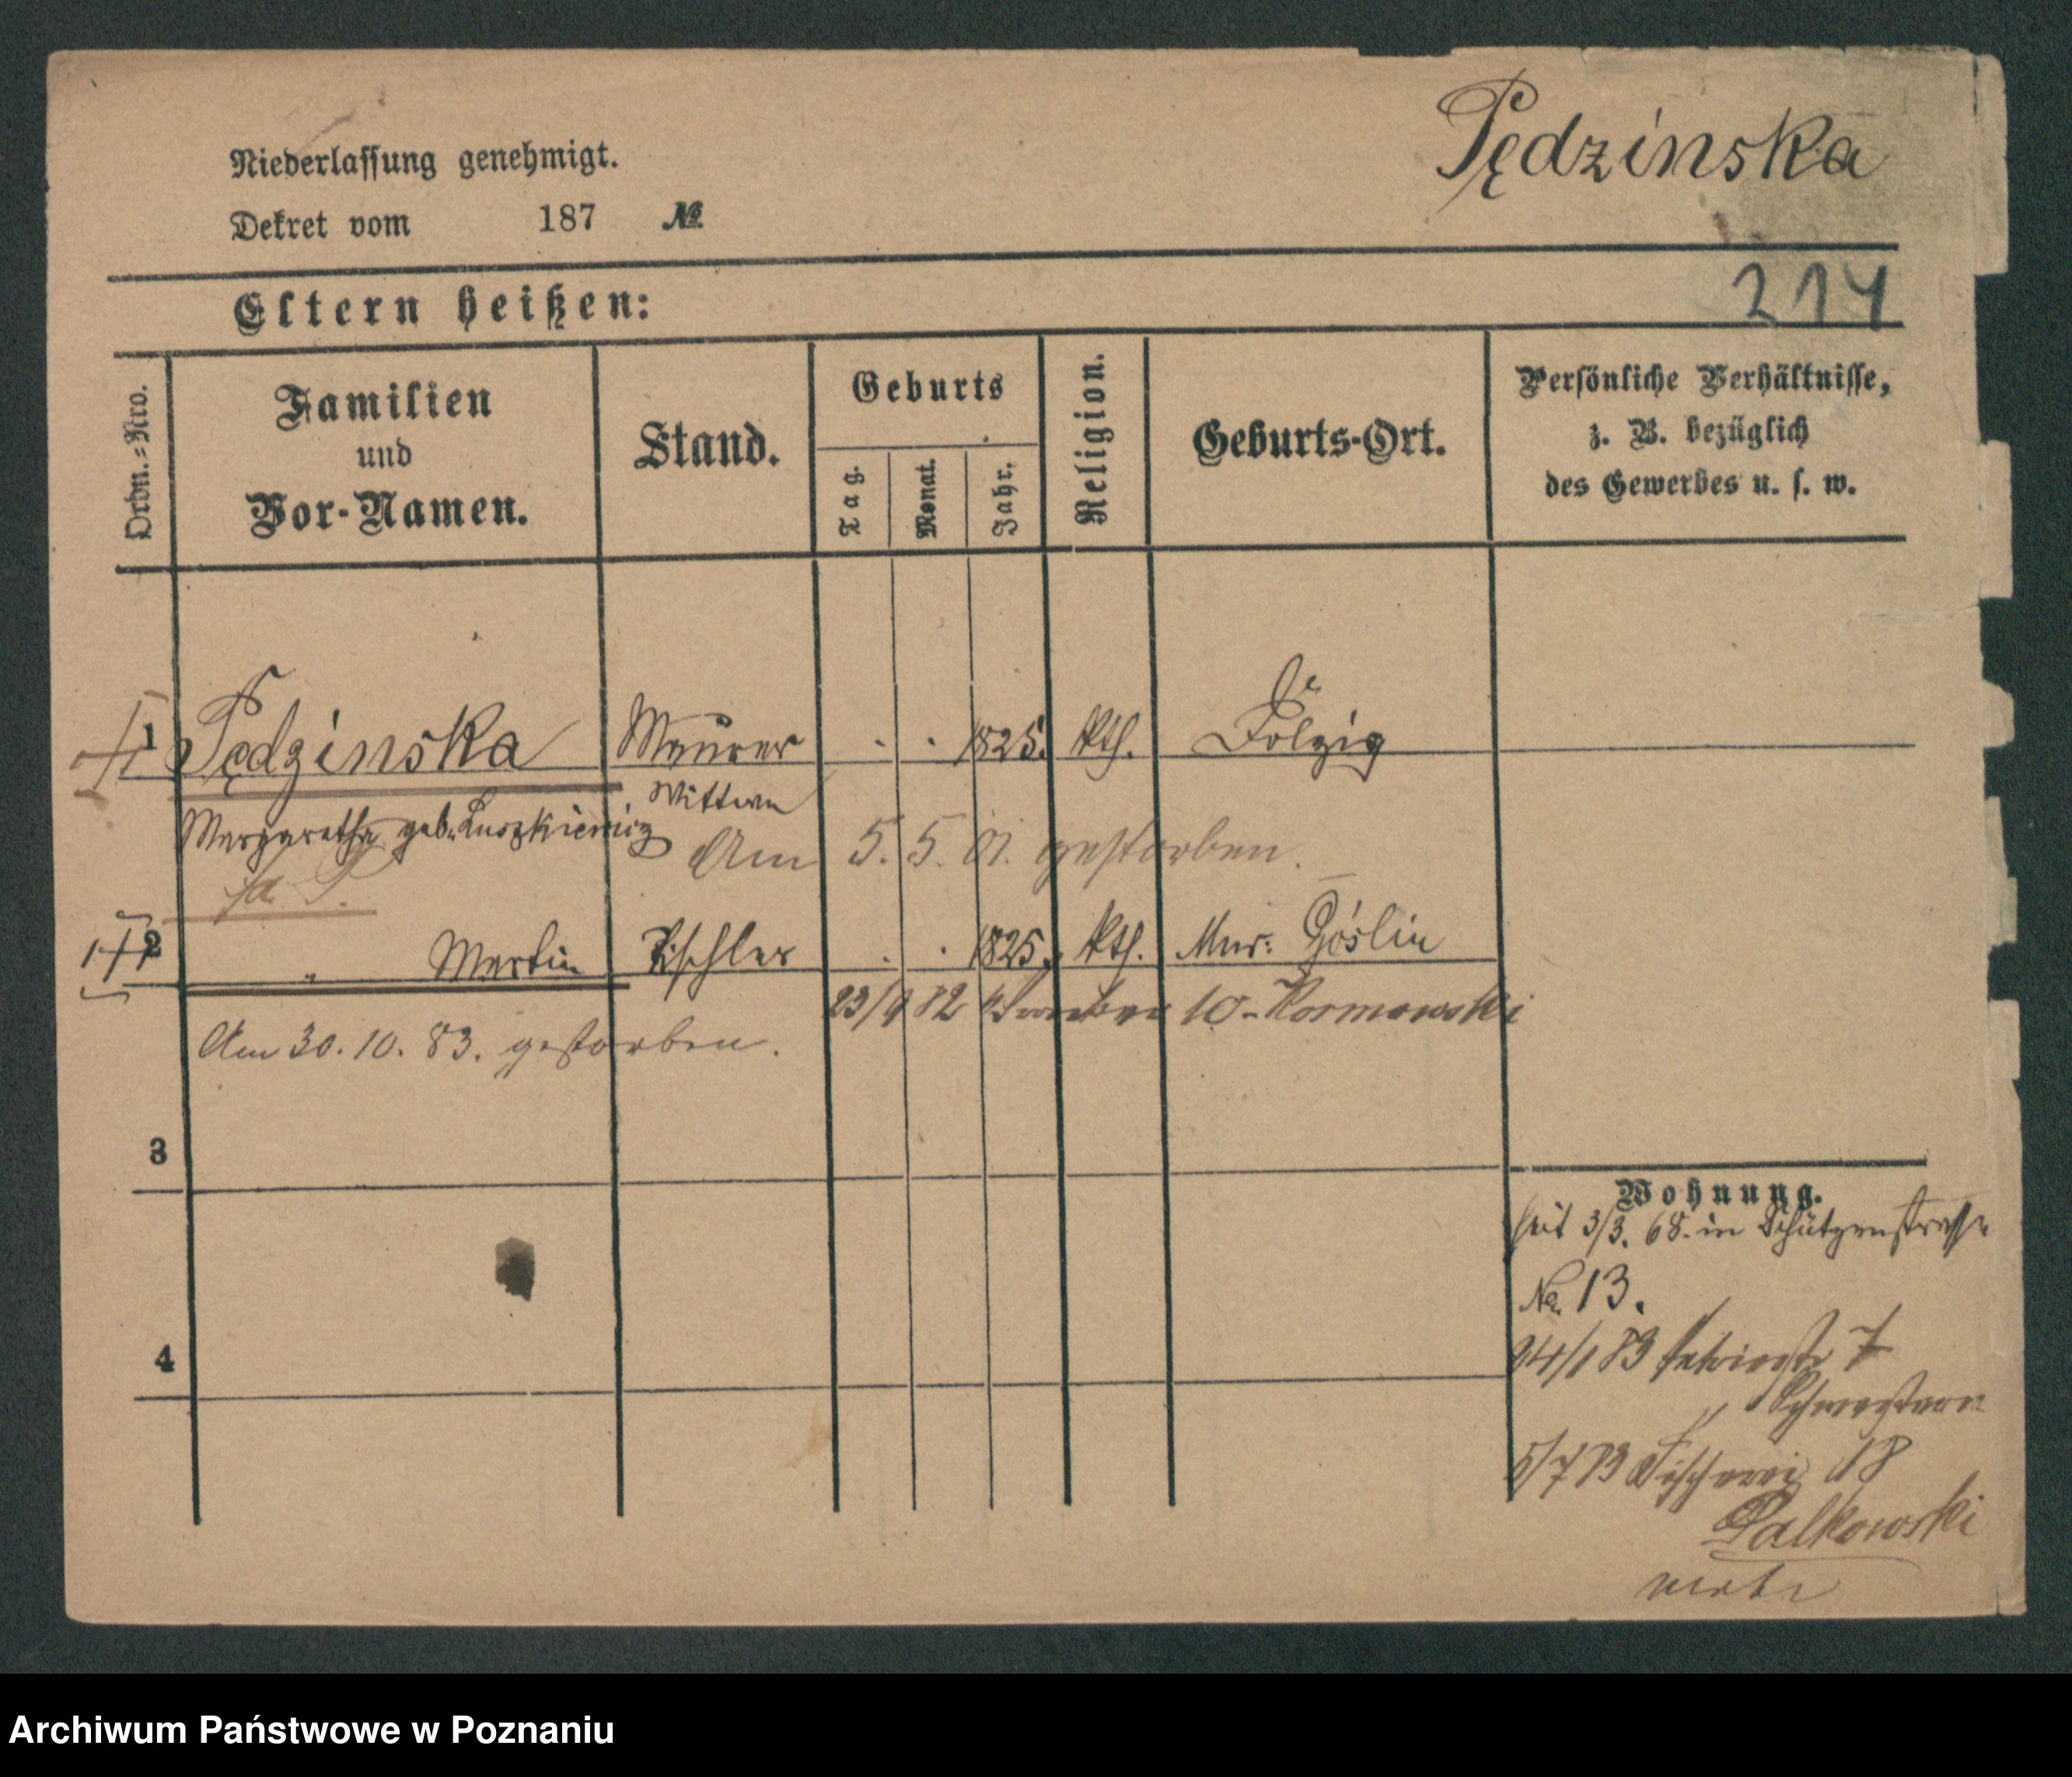 Pędzinska
Niederlassung genehmigt.
Dekret vom 187 №
214
Eltern heißen:
Ordn.=Nro.
Familien
und
Vor-Namen.
Stand.
Geburts
Tag.
Monat.
Jahr.
Religion.
Geburts-Ort.
Persönliche Verhältnisse,
z. B. bezüglich
des Gewerbes u. s. w.
1 Pędzinska Maurer . . 1825. kth. Dolzig
Wittwe
Margaretha geb. Luszkiewicz
Am 5. 5. 01. gestorben.
2 " Martin Tischler . . 1825. kth. Mur: Goslin
23/9 82 10 - Kormowski
Am 30. 10. 83. gestorben.
3
4
Wohnung.
seit 3/3. 68. in Schützenstrasse
No. 13.
24/1 83 7
Schwestern
5/7 83 Fischerei 18
Palkowski